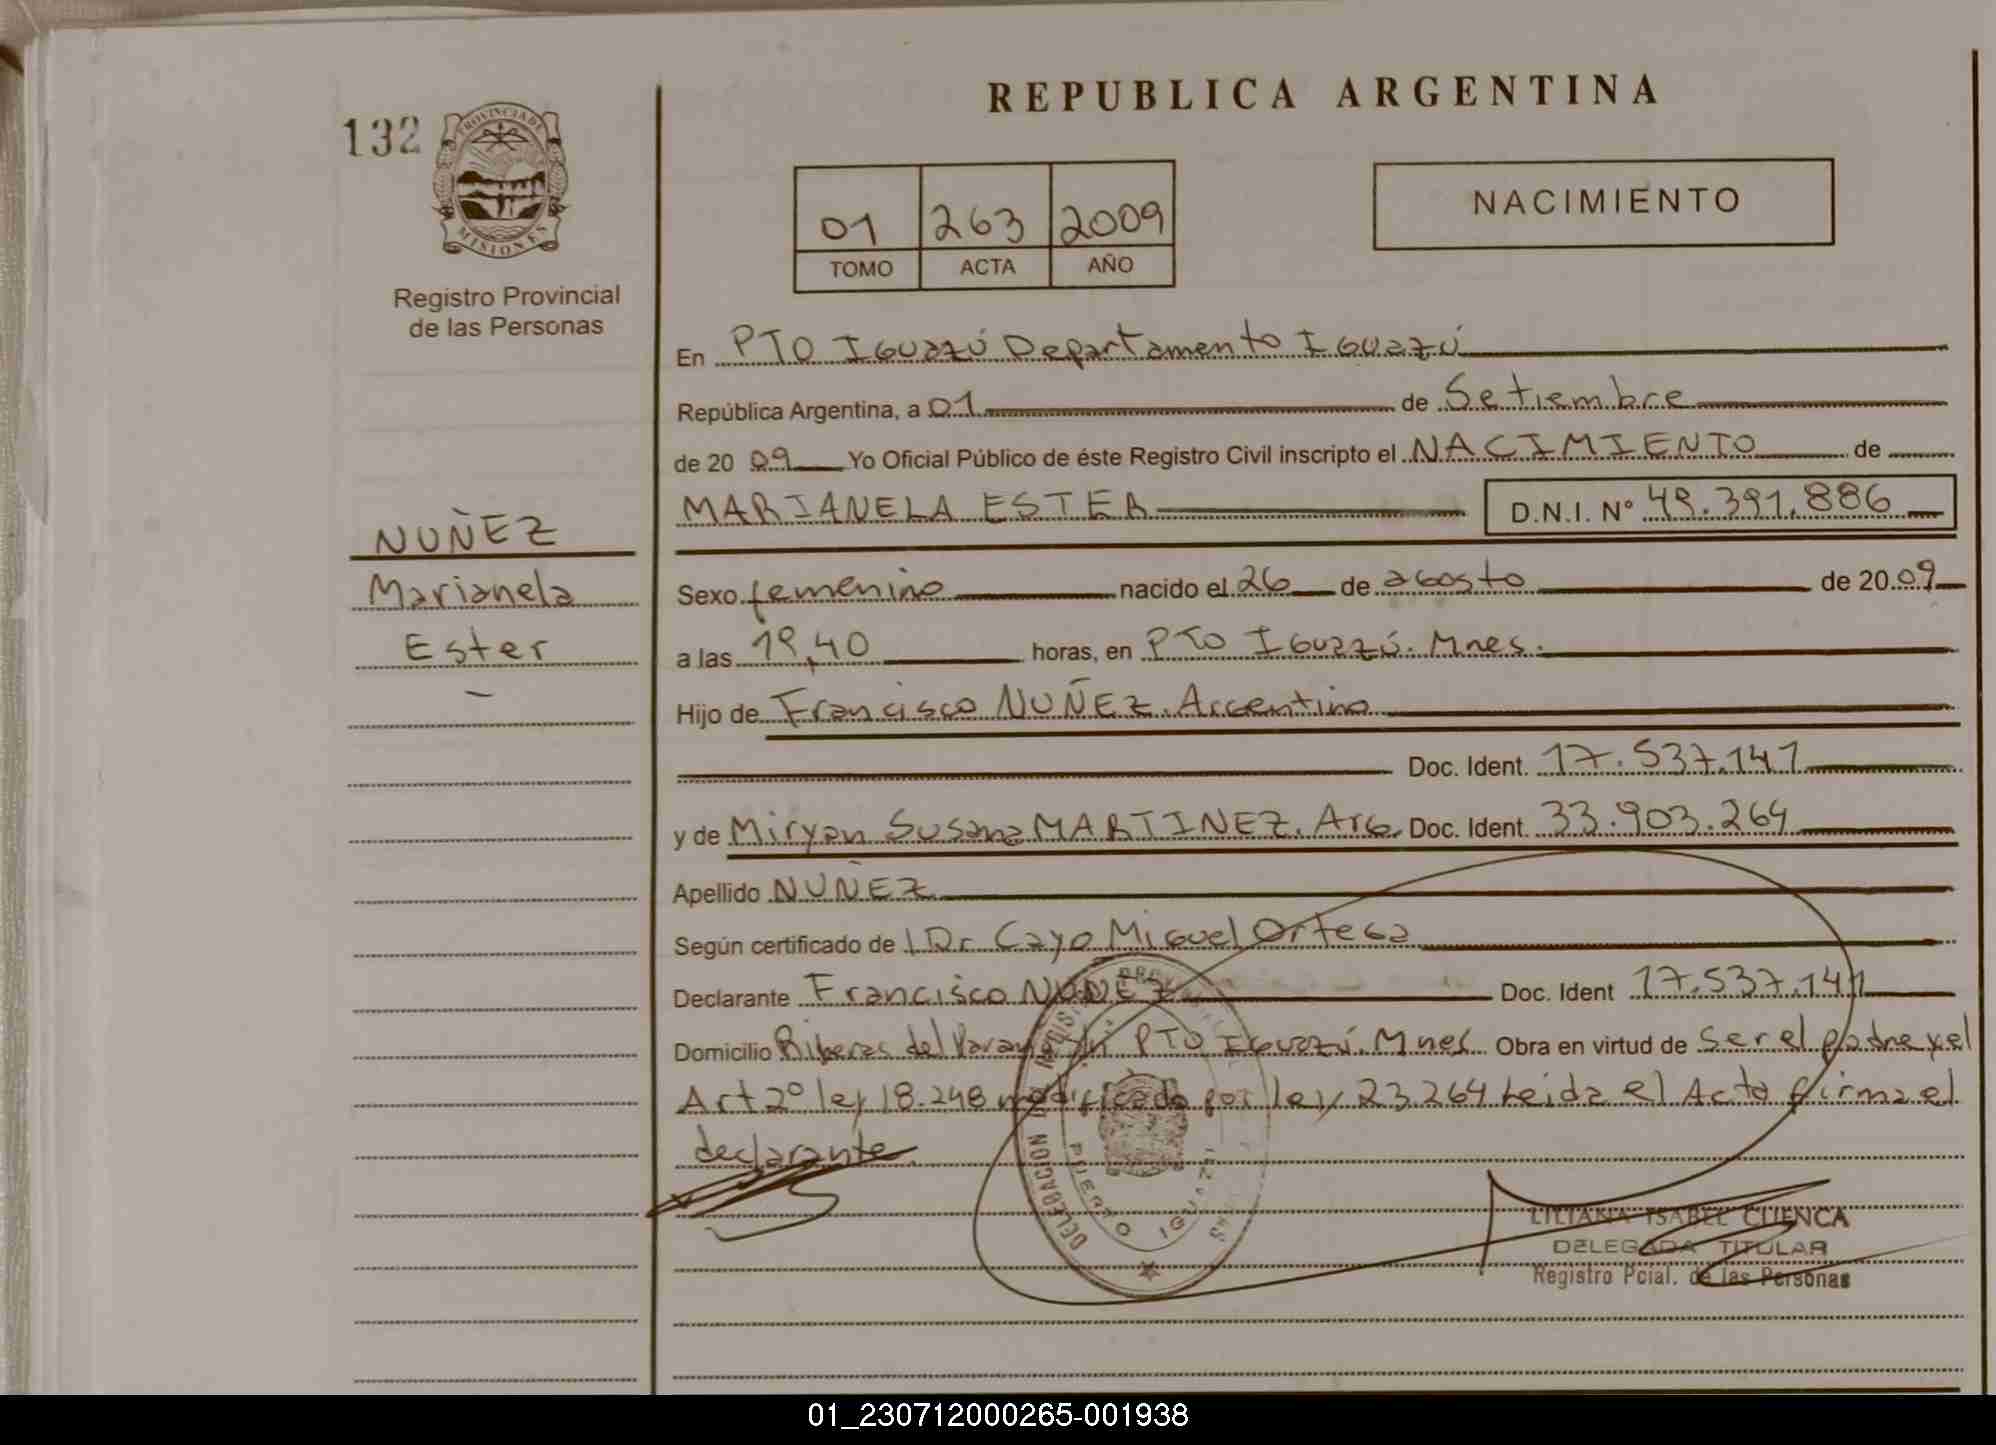 REPUBLICA ARGENTINA
132
PROVINCIA DE
MISIONES
Registro Provincial
de las Personas
01 263 2009
TOMO ACTA AÑO
NACIMIENTO
En PTO IGuazú Departamento IGuazú
República Argentina, a 01 de Setiembre
de 20 09 Yo Oficial Público de éste Registro Civil inscripto el NACIMIENTO de
MARIANELA ESTER D.N.I. Nº 49.391.886
NUÑEZ
Marianela
Ester
Sexo femenino nacido el 26 de agosto de 20 09
a las 19,40 horas, en PTO IGuazú. Mnes.
Hijo de Francisco NUÑEZ. Argentino
Doc. Ident. 17.537.141
y de Miryan Susana MARTINEZ. ArG. Doc. Ident. 33.903.264
Apellido NUÑEZ
Según certificado de Dr Cayo Miguel Ortega
Declarante Francisco NUÑEZ Doc. Ident 17.537.141
Domicilio Riberas del Paraná S/n PTO IGuazú. Mnes Obra en virtud de ser el padre y el
Art 2º ley 18.248 modificado por ley 23.264 Leida el Acta firma el
declarante.
DELEGACION
PUERTO IGUAZU
LILIANA ISABEL CUENCA
DELEGADA TITULAR
Registro Pcial. de las Personas
01_230712000265-001938